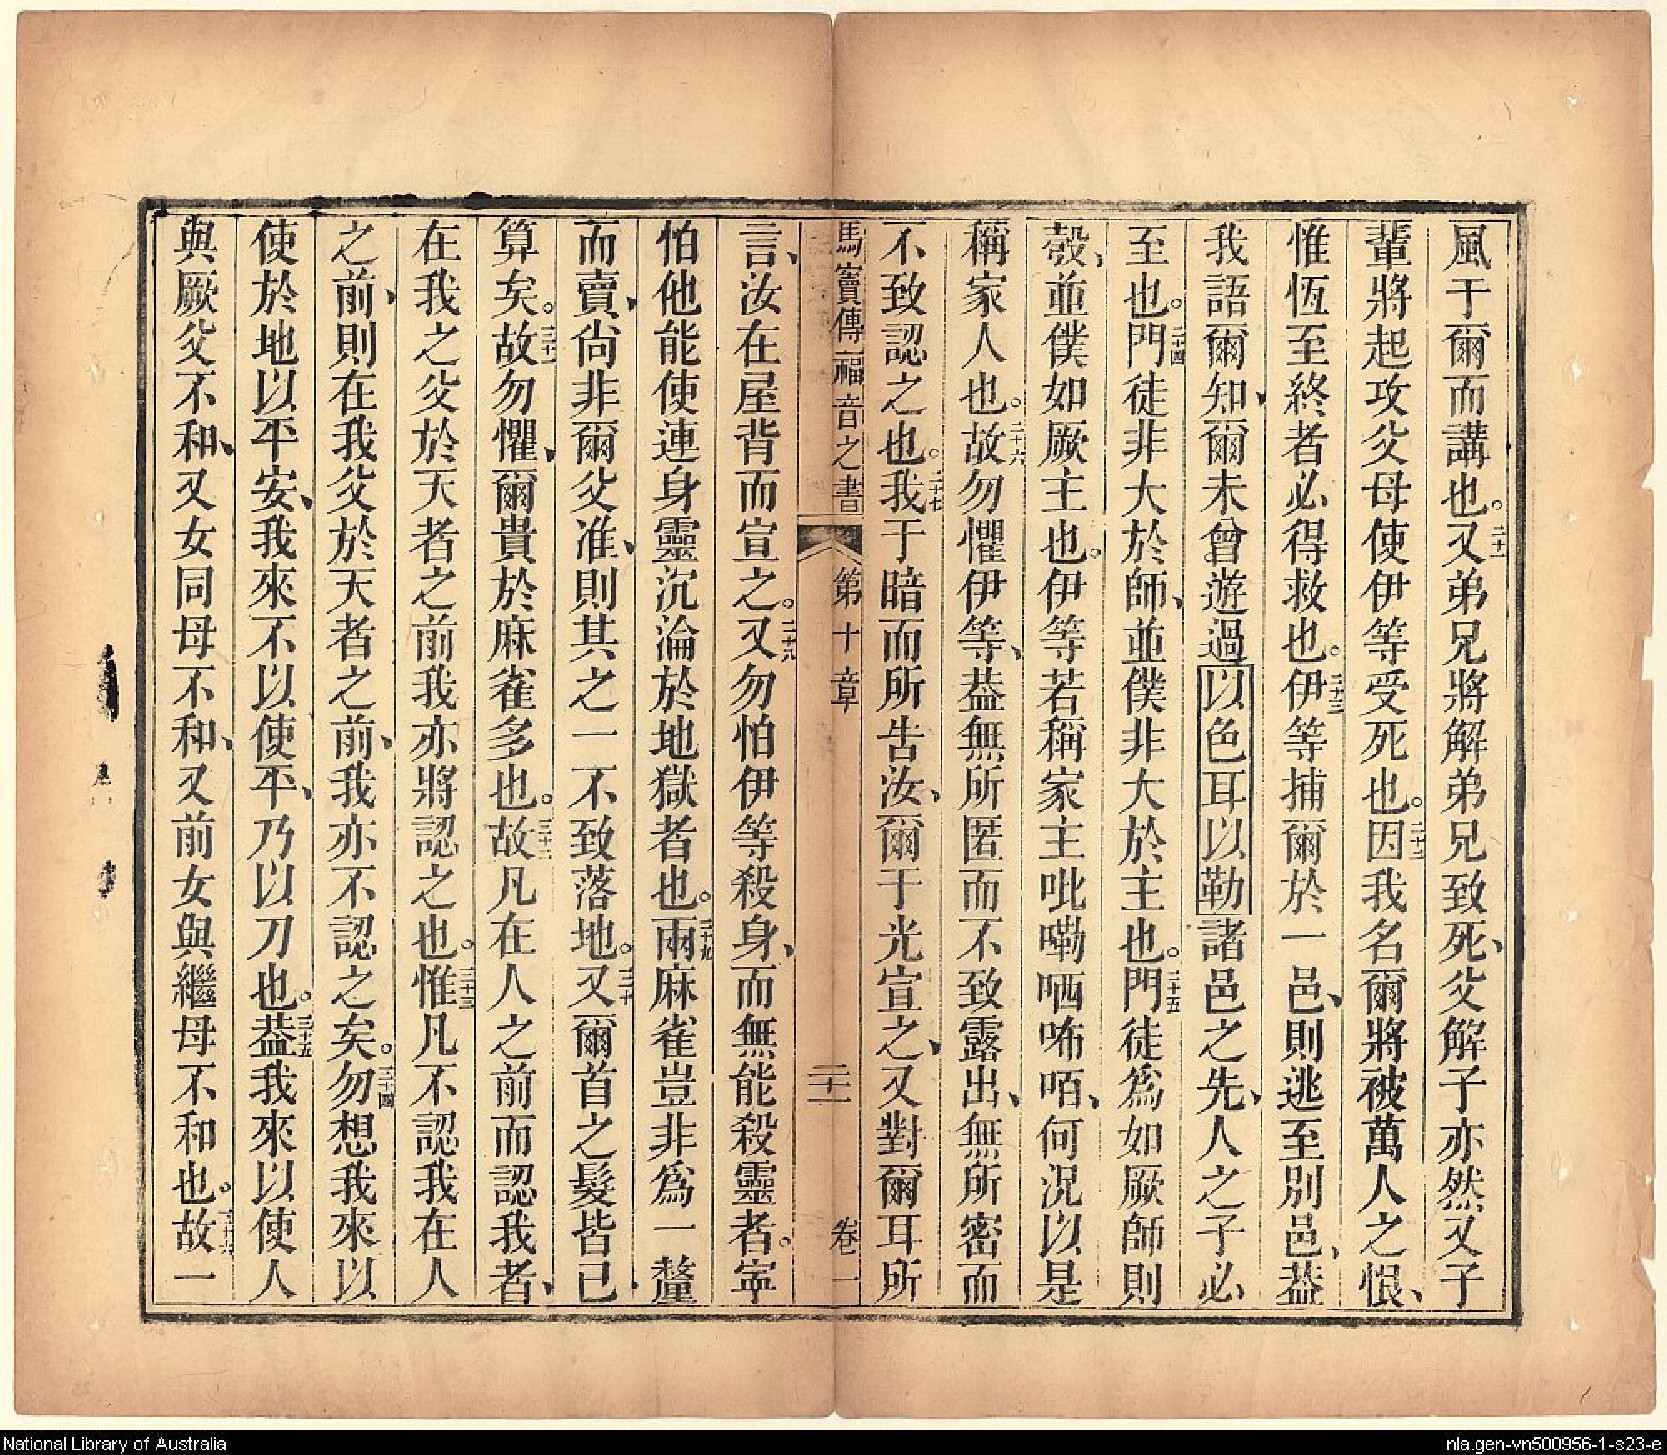 風于爾而講也。二十一又弟兄將解弟兄致死、父解子亦然又子
輩將起攻父母使伊等受死也。二十二因我名爾將被萬人之恨、
惟恆至終者必得救也。二十三伊等捕爾於一邑、則逃至別邑、葢
我語爾知、爾未曾遊過以色耳以勒諸邑之先、人之子必
至也。二十四門徒非大於師、並僕非大於主也。二十五門徒為如厥師則
彀、並僕如厥主也。伊等若稱家主吡嘞哂咘咟、何況以是
稱家人也。二十六故勿懼伊等、葢無所匿而不致露出、無所密而
不致認之也。二十七我于暗而所告汝、爾于光宣之、又對爾耳所
馬竇傳福音之書 第十章 二十一 卷一
言、汝在屋背而宣之。二十八又勿怕伊等殺身、而無能殺靈者。寧
怕他能使連身靈沉淪於地獄者也。二十九兩麻雀豈非為一釐
而賣、尚非爾父准、則其之一不致落地。三十又爾首之髮皆已
算矣。三十一故勿懼、爾貴於麻雀多也。三十二故凡在人之前而認我者、
在我之父於天者之前我亦將認之也。三十三惟凡不認我在人
之前、則在我父於天者之前、我亦不認之矣。三十四勿想我來以
使於地以平安、我來不以使平、乃以刀也。三十五葢我來以使人
與厥父不和、又女同母不和、又前女與繼母不和也。三十六故一
National Library of Australia
nla.gen-vn500956-1-s23-e